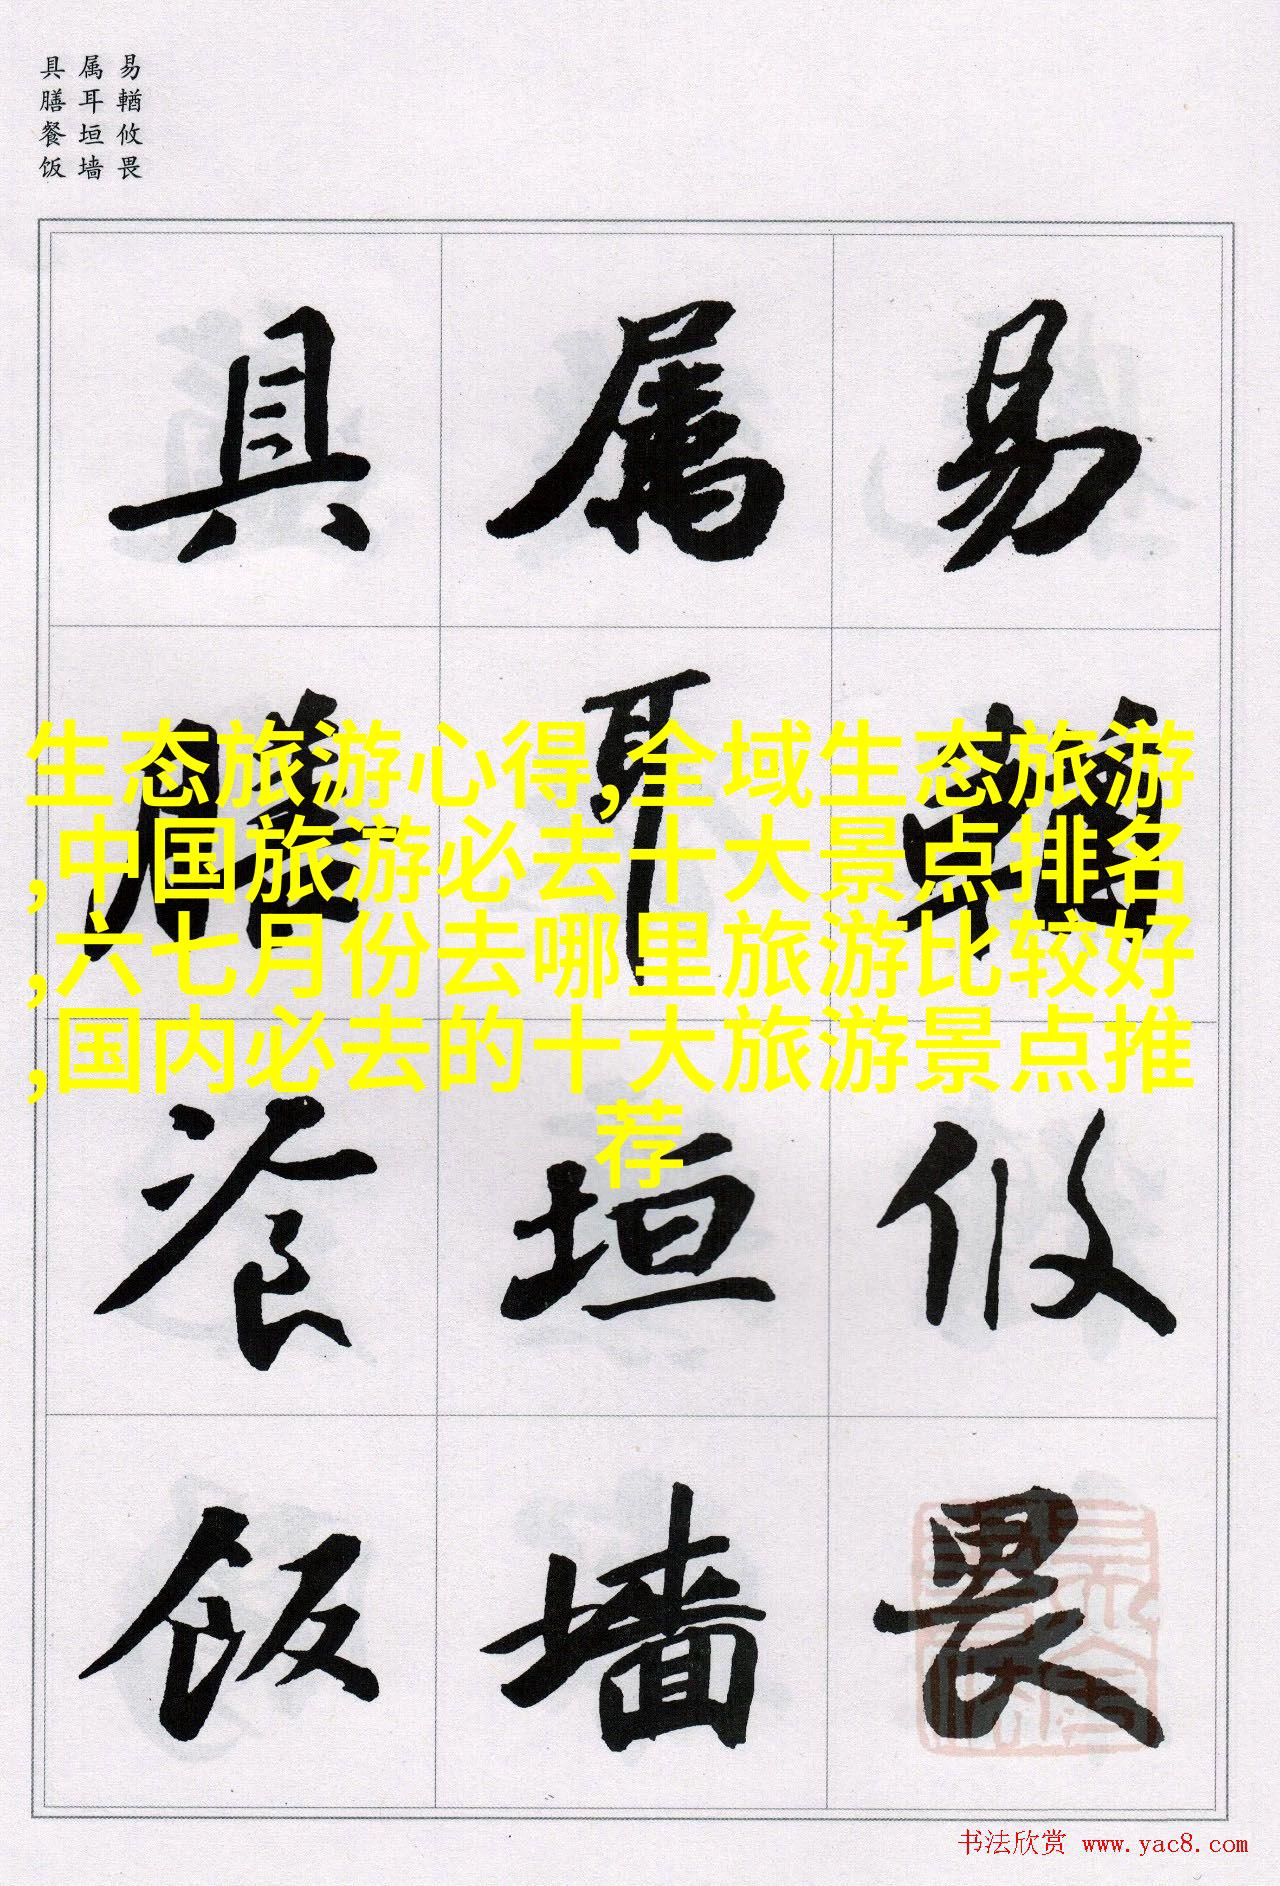 易輶攸畏
属耳垣墙
具膳餐饭
易輶攸畏
属耳垣墙
具膳飡饭
生态旅游心得,全域生态旅游
,中国旅游必去十大景点排名
,六七月份去哪里旅游比较好
,国内必去的十大旅游景点推
荐
书法欣赏 www.yac8.com